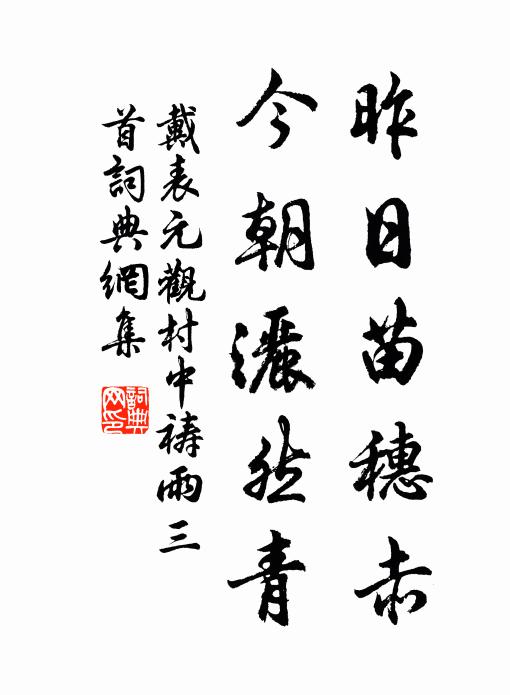 昨日苗穗赤
今朝灑然青
戴表元觀村中禱雨三
首詞典網集
詞典
网印